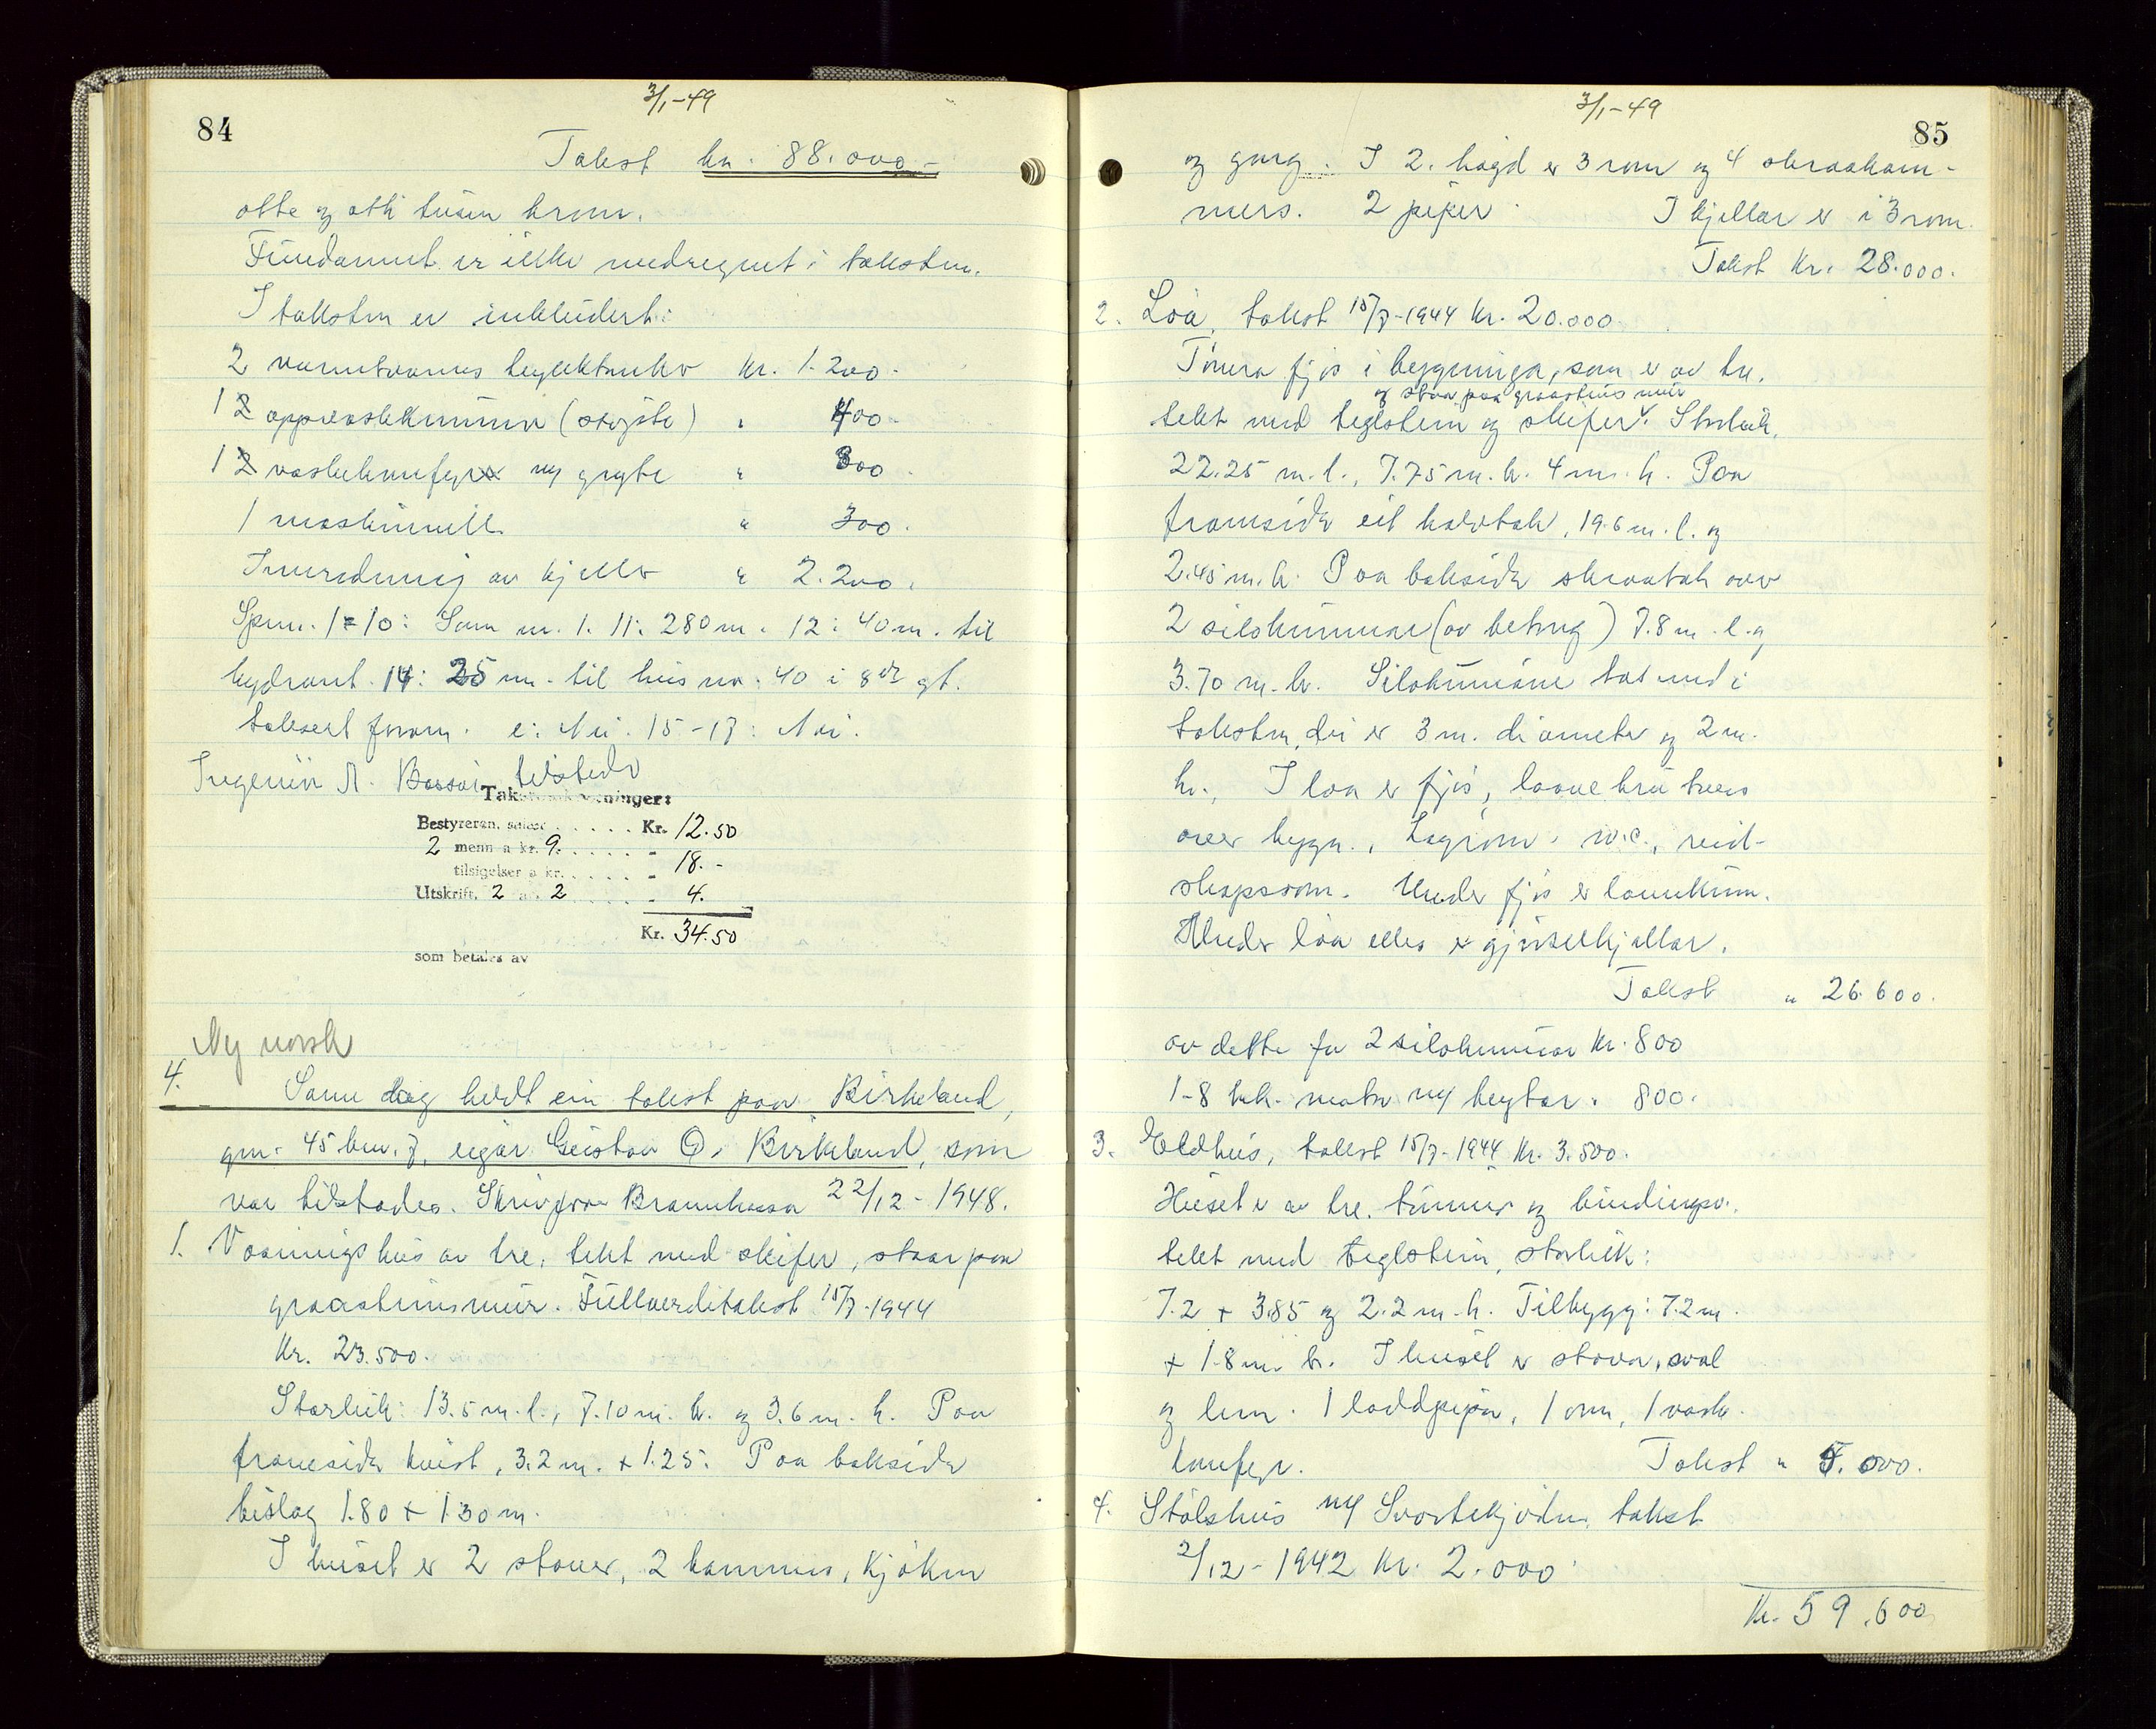 84
3/1-49
Takst kr. 88.000.-
otte og otti tusen kroner.
Fundament er ikke medregnet i taksten.
I taksten er inkludert:
2 varmtvanns Kr. 1.200.-
1 oppvaskkummer (støpte) " 400.-
1 m/ gryte " 800.
1 " 300.
Innredning av kjeller " 2.200.
Spm. 1-10: Som nr. 1. 11: 280 m. 12: 40 m. til
hydrant. 14: 25 m. til hus nr. 40 i 8de gt.
taksert e: Nei. 15-17: Nei.
Ingeniør A. tilstede
Takstomkostninger:
Bestyreren, Kr. 12.50
2 menn a kr. 9. - 18.-
tilsigelser a kr. -
Utskrift. 2 a 2 - 4.
Kr. 34.50
som betales av
Ny norsk
4. Same dag heldt ein takst paa Birkeland,
gnr. 45 bnr. 7, eigar Gustav O. Birkeland, som
var tilstades. Skriv fraa Brannkassa 22/12-1948.
1. Vaaningshus av tre, tekt med skifer, staar paa
graasteinsmur. Fullverditakst 15/7-1944
Kr. 23.500.
Storleik: 13.5 m. l., 7.10 m. br. og 3.6 m. h. Paa
framsida kvist, 3.2 m. + 1.25. Paa baksida
bislag 1.80 + 1.30 m.
I huset er 2 stover, 2 kammers, kjøken
3/1-49
85
og gang. I 2. høgd er 3 rom og 4 skraakam-
mers. 2 piper. I kjellar er i 3 rom.
Takst Kr. 28.000.
2. Løa, takst 15/7-1944 Kr. 20.000.
Tømra fjøs i bygninga, som er av tre.
og staar paa graasteins mur
tekt med teglstein og skifer. Storleik.
22.25 m. l., 7.75 m. br. 4 m. h. Paa
framsida eit halvtak, 19.6 m. l. og
2.45 m. br. Paa baksida skraatak over
2 silokummar (av betong) 7.8 m. l. og
3.70 m. br. Silokummane tat med i
taksten, dei er 3 m. diameter og 2 m.
h. I løa er fjøs, laavebru tvers
over bygn., w.c., reid-
skapsrom. Under fjøs er
Under løa elles er gjødselkjellar.
Takst " 26.600.
av dette for 2 silokummar Kr. 800
1-8 hk. motor m/ brytar. 800.
3. Eldhus, takst 15/7-1944 Kr. 3.500.
Huset er av tre, tømmer og bindingsv.
tekt med teglstein, storleik:
7.2 + 3.85 og 2.2 m. h. Tilbygg: 7.2 m.
+ 1.8 m. br. I huset er stova, sval
og lem. 1 laddpipa, 1 omn, 1 vask-
Takst " 5.000.
4. Stølshus m/ takst
2/12-1942 Kr. 2.000.
Kr. 59.600